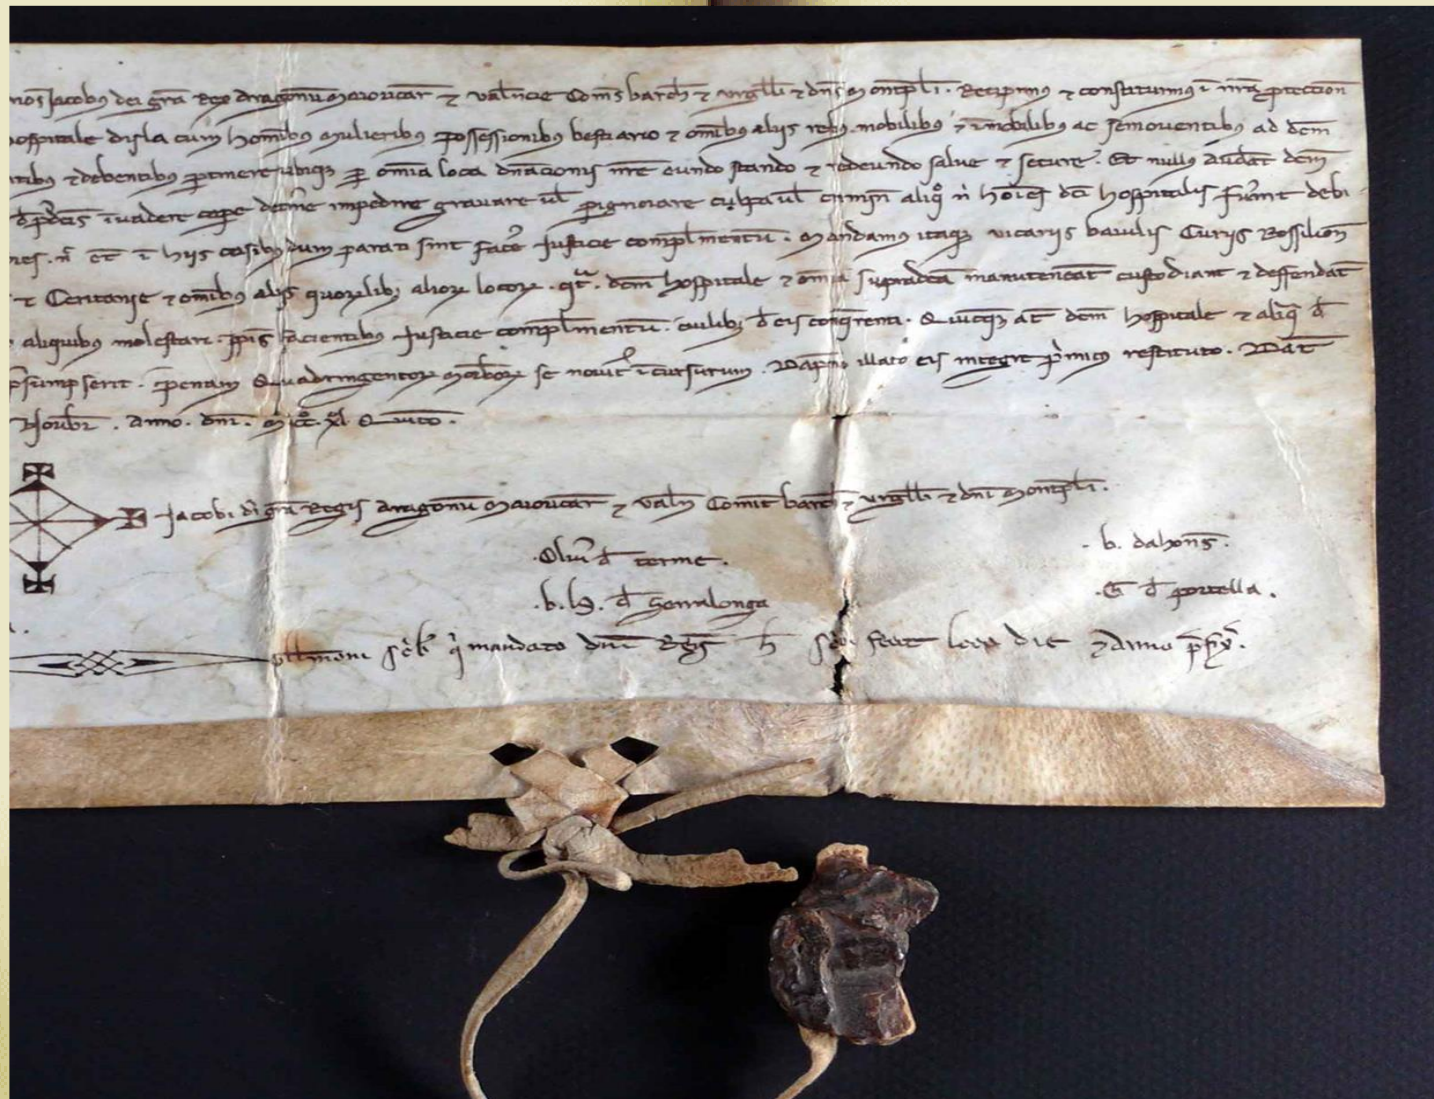 nos Jacobus dei gra Rex Aragonum Maioricar & Valencie Comes barch & Urgelli & dns Montpli. Recipimus & constituimus i nra protection
hospitale disla cum hominibus mulieribus possessionibus bestiario & omibus aliis rebus mobilibus & inmobilibus ac semoventibus ad dcm
ntibus & debentibus pertinere ubiqz per omia loca dnacionis nre eundo stando & redeundo salve & secure. Et nullus audeat dcm
de pdctis invadere cape detine impedire gravare vl pignorare culpa vl crimin aliqo ni hoies dci hospitalis fuint debi
res. ni et i hiis casibus dum parati sint face justicie complmentum. Mandamus itaqz vicariis baiulis Curiis Rossilion
& Ceritanie & omibus aliis quorumlibz aliorum locorum. qt. dcm hospitale & omia supradca manuteneat custodiant & deffendat
aliquibus molestari. ipsis facientibus justicie complmentum. cuilibz de eis conqrenti. Quicuqz at dcm hospitale & aliq de
psumpserit. penam Quadringentorum morborum se noverit icursurum. Dampno illato eis integre pimitus restituto. Dat
Novebr. anno. dni. M CC XL Quinto.
Jacobi di gra Regis Aragonum Maioricar & Valn Comit barch & Urgelli & dni Montpli.
Oliv d terme.
b. dahons.
b. d Serralonga
G d portella.
Guillmoni scb q mandato dni Regis h scbi fecit loco die & anno pfix.